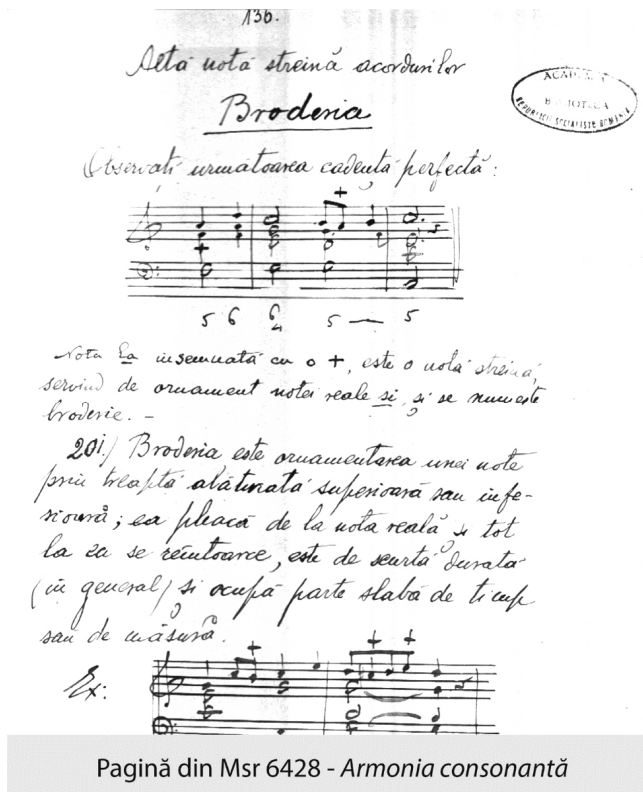 136.
Altă notă streină acordurilor
Broderia
ACAD.
BIBLIOTECA
REPUBLICII SOCIALISTE ROMÂNIA
Observați următoarea cadență perfectă:
+
5 6 6 5 — 5
4
Nota La însemnată cu o +, este o notă streină,
servind de ornament notei reale si, și se numește
broderie. –
201.) Broderia este ornamentarea unei note
prin treaptă alăturată superioară sau infe-
rioară; ea pleacă de la nota reală și tot
la ea se reîntoarce, este de scurtă durată
(în general) și ocupă parte slabă de timp
sau de măsură.
+ + +
Ex:
Pagină din Msr 6428 - Armonia consonantă